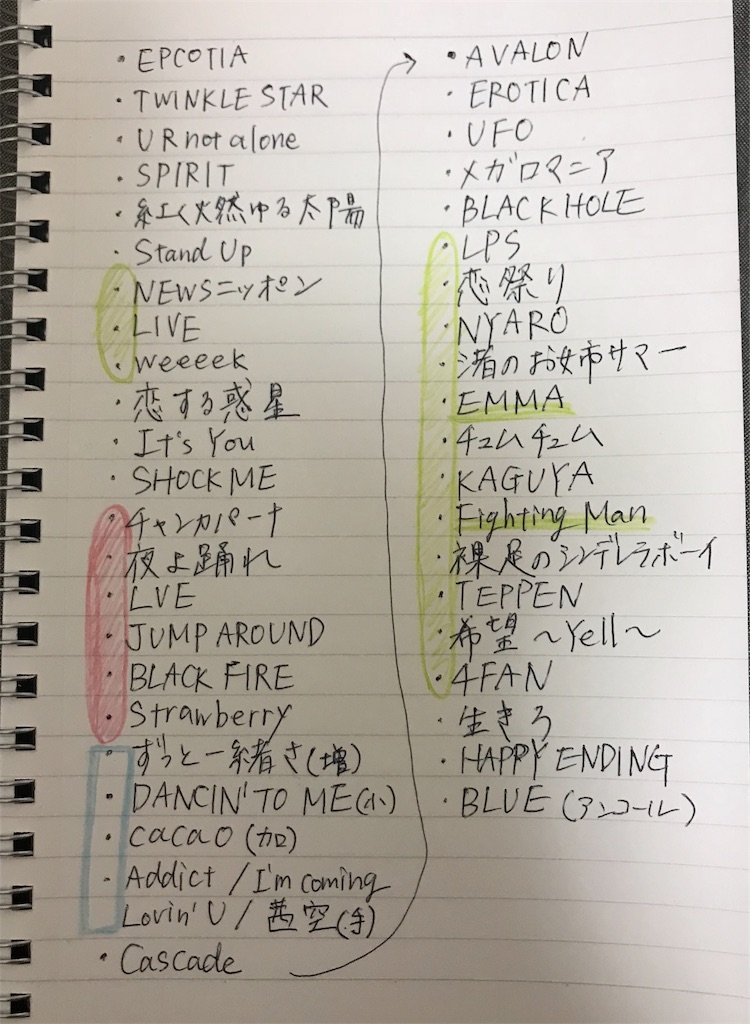 ・EPCOTIA
・TWINKLE STAR
・U R not alone
・SPIRIT
・紅く燃ゆる太陽
・Stand Up
・NEWSニッポン
・LIVE
・weeeek
・恋する惑星
・It's You
・SHOCK ME
・チャンカパーナ
・夜よ踊れ
・LVE
・JUMP AROUND
・BLACK FIRE
・Strawberry
・ずっと一緒さ(増)
・DANCIN' TO ME(小)
・cacao(加)
・Addict / I'm coming
Lovin' U / 茜空(手)
・Cascade
・AVALON
・EROTICA
・UFO
・メガロマニア
・BLACK HOLE
・LPS
・恋祭り
・NYARO
・渚のお姉サマー
・EMMA
・チュムチュム
・KAGUYA
・Fighting Man
・裸足のシンデレラボーイ
・TEPPEN
・希望〜Yell〜
・4FAN
・生きろ
・HAPPY ENDING
・BLUE(アンコール)